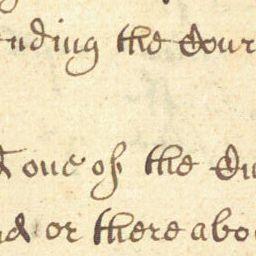 nding the Cour
one of the Qu
nd or there abo